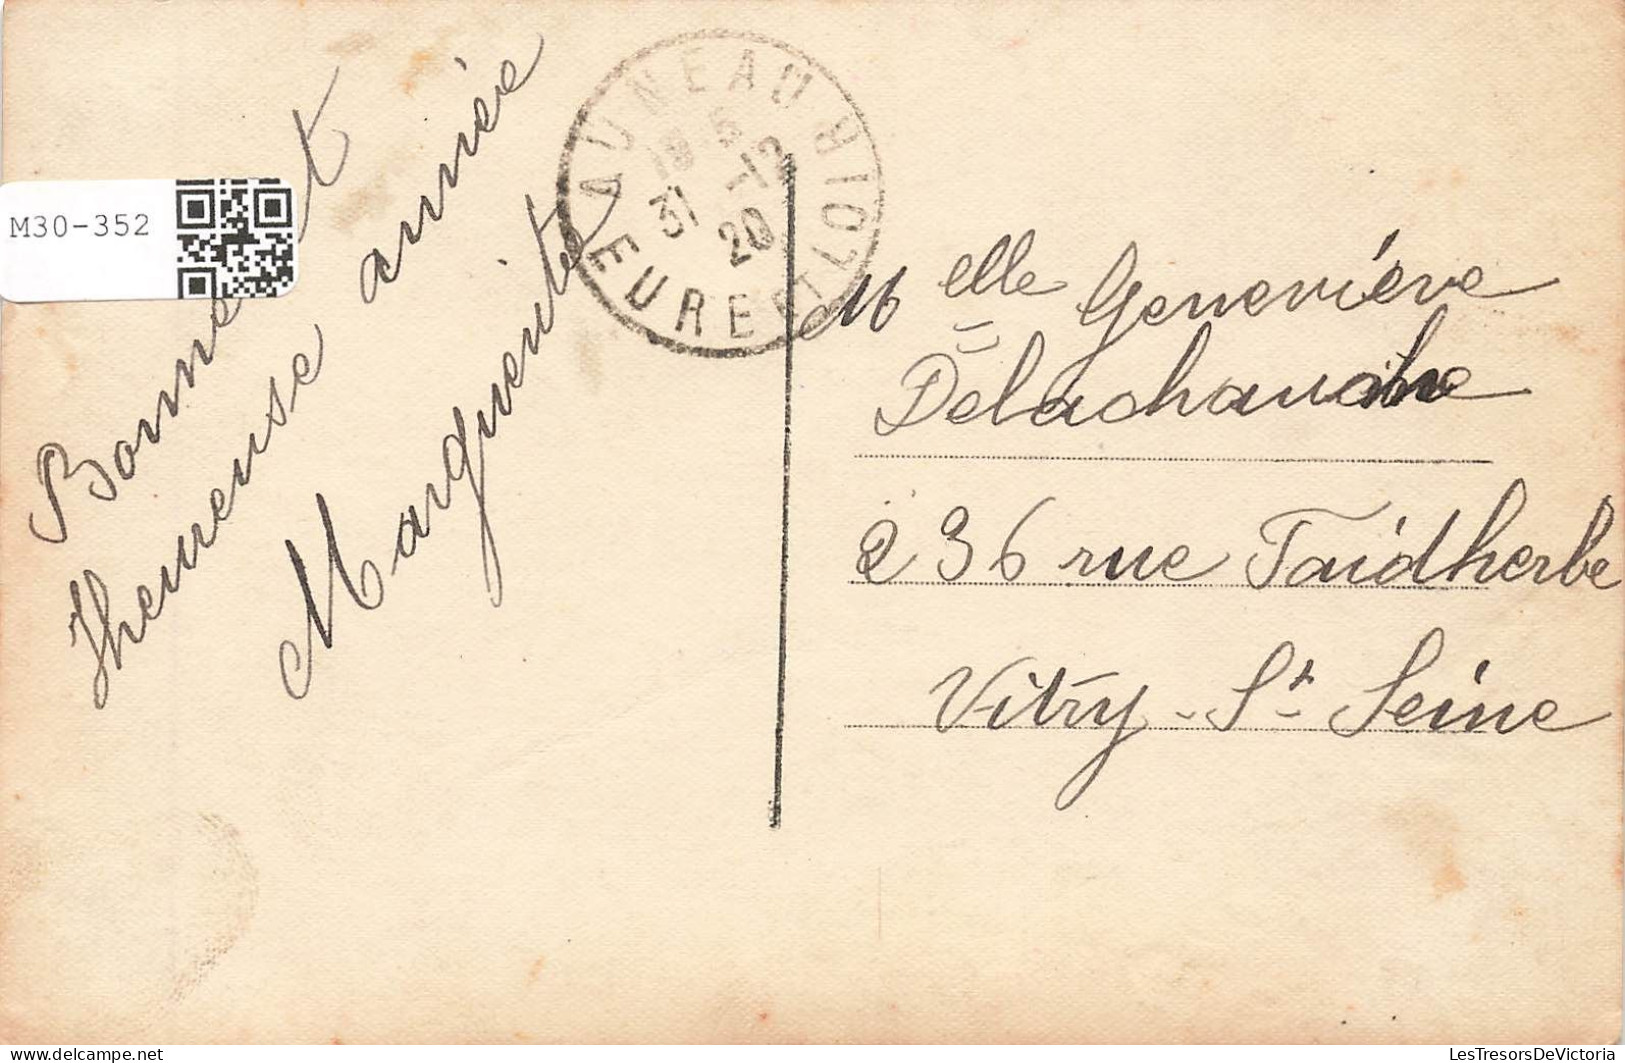 M30-352
Bonne et
heureuse année
Marguerite
AUNEAU
18 5
31 -12
20
EURE ET LOIR
Melle Geneviève
Delachauche
236 rue Faidherbe
Vitry - St - Seine
LesTresorsDeVictoria